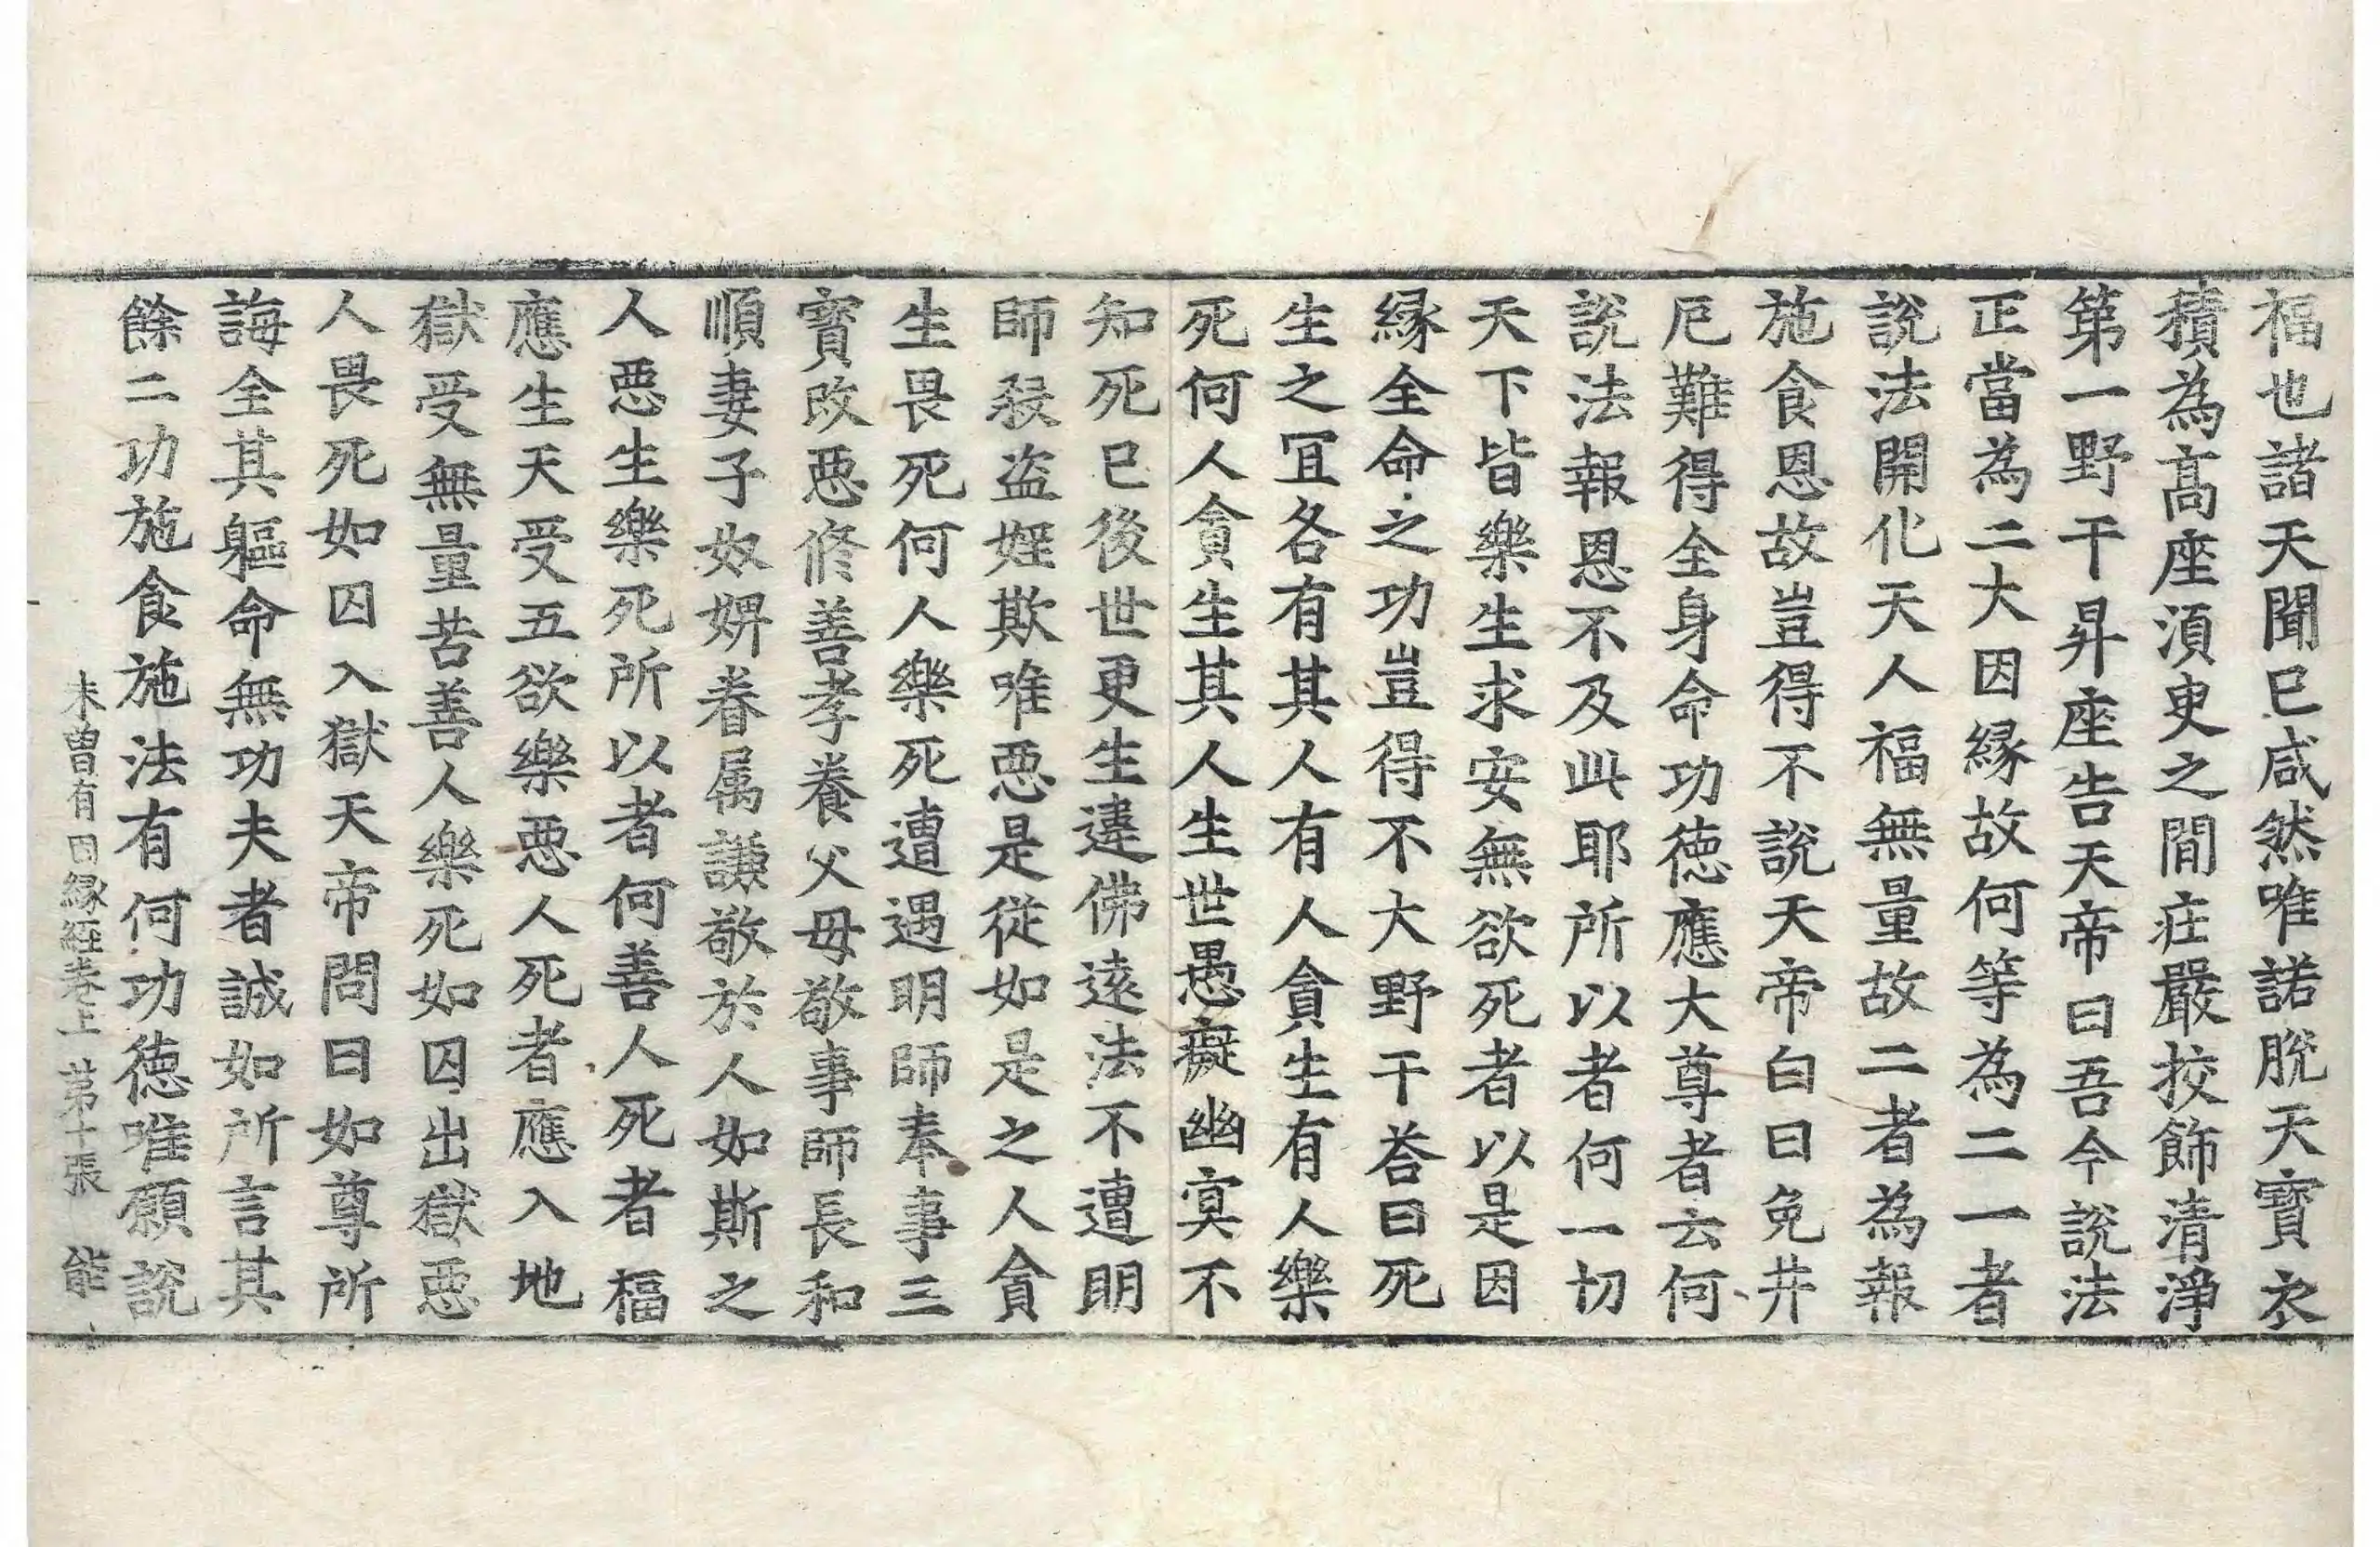 福也諸天聞已咸然唯諾脫天寶衣
積為高座湏臾之間莊嚴挍飾清淨
第一野干昇座告天帝曰吾今說法
正當為二大因縁故何等為二一者
說法開化天人福無量故二者為報
施食恩故豈得不說天帝白曰免井
厄難得全身命功徳應大尊者云何
說法報恩不及此耶所以者何一切
天下皆樂生求安無欲死者以是因
縁全命之功豈得不大野干荅曰死
生之冝各有其人有人貪生有人樂
死何人貪生其人生世愚癡幽冥不
知死已後世更生違佛遠法不遭明
師殺盜婬欺唯惡是從如是之人貪
生畏死何人樂死遭遇明師奉事三
寶改惡修善孝養父母敬事師長和
順妻子奴婢眷属謙敬於人如斯之
人惡生樂死所以者何善人死者福
應生天受五欲樂惡人死者應入地
獄受無量苦善人樂死如囚出獄惡
人畏死如囚入獄天帝問曰如尊所
誨全其軀命無功夫者誠如所言其
餘二功施食施法有何功徳唯願說
未曾有因縁経卷上　第十張　能